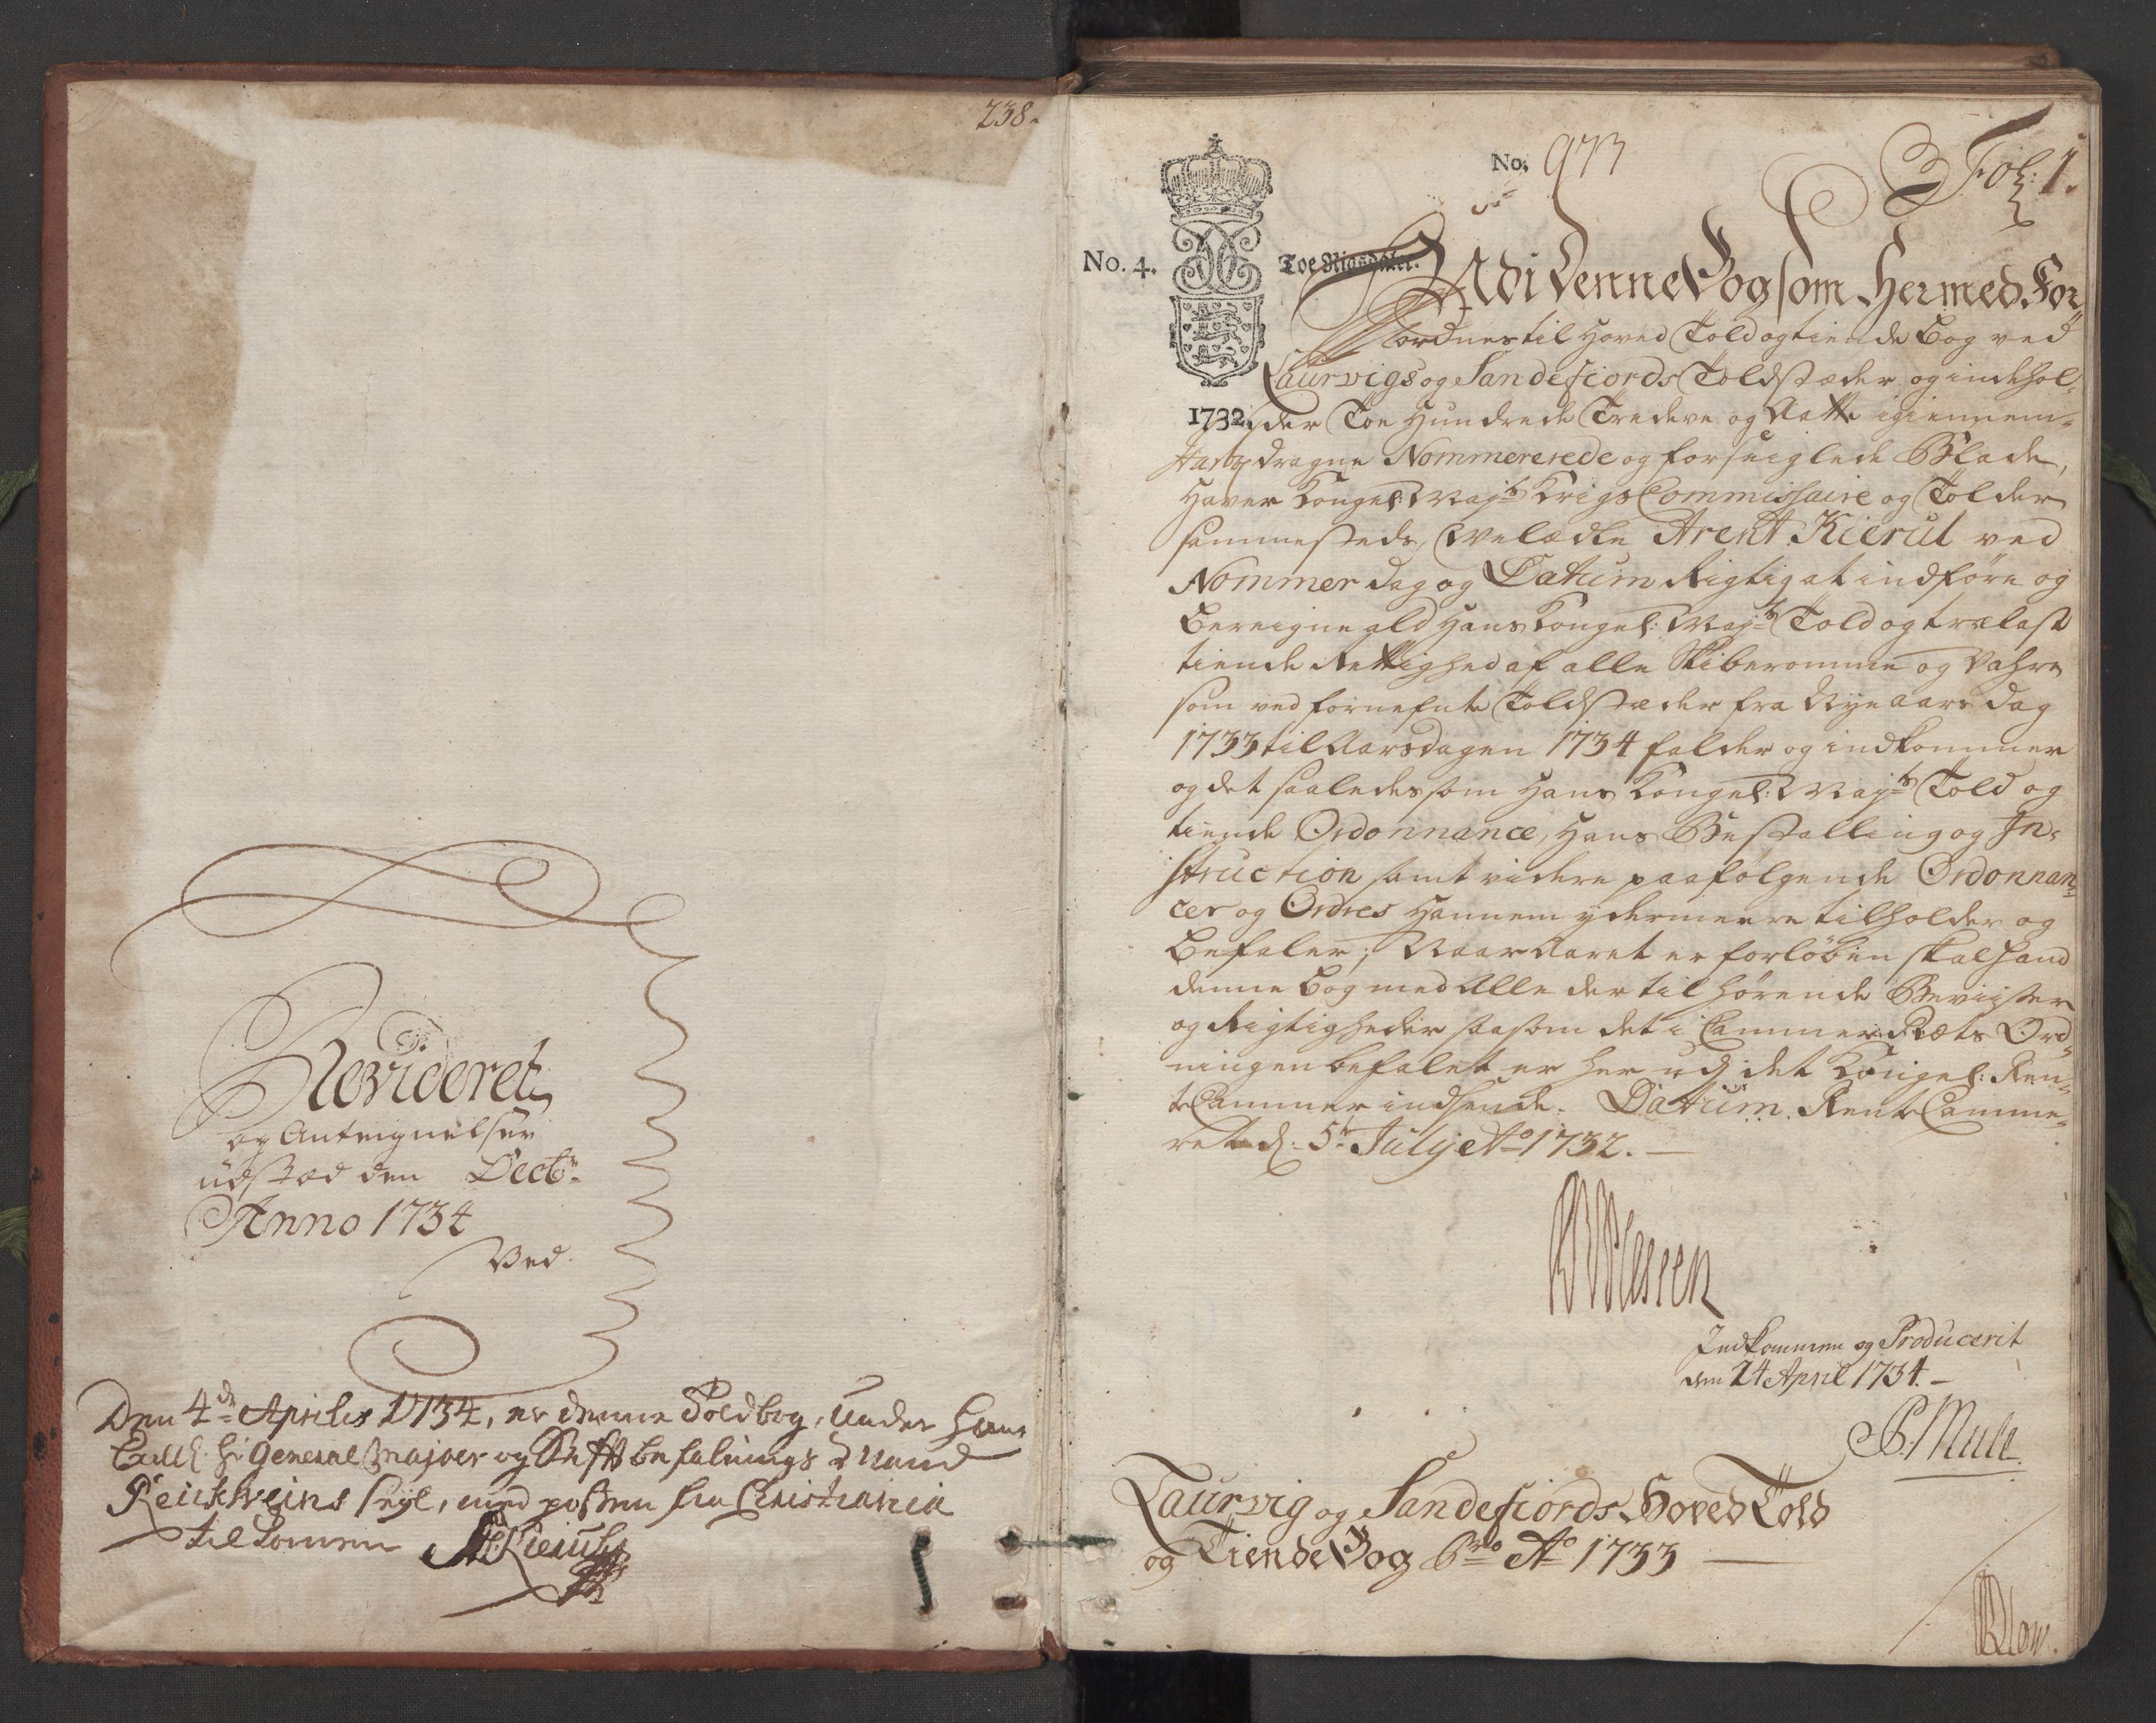 238.
Revideret
og Antegnelser
udsted den Decbr
Anno 1734
Ved
Den 4de Aprilis 1734, er denne Toldbog, under Hans
Excell: Hr General Majoer og Stiftbefalnings Mand
Reichweins segl, med posten fra Christiania
tilkommen AKierulf
No. 973
Fol: 1.
No. 4.
Toe Rigsdaler.
1732.
Udi Denne Bog som Hermed For
ordnes til Hoved Told og tiende Bog ved
Laurvigs og Sandefiords Toldstæder og indehol-
der Toe Hundrede Tredeve og Aatte igiennem-
dragne Nommererede og forseiglede Blade,
Haver Kongel: Mayts Krigs Commissaire og Tolder
sammesteds, Welædle Arent Kierul ved
Nommer dag og Datum Rigtig at indføre og
Bereigne ald Hans Kongel: Mayts Told og trælast
tiende Rettighed af alle Skiberomme og Vahre
som ved fornefnte Toldstæder fra Nye aars dag
1733 til Aarsdagen 1734 falder og indkommer
og det saaledes som Hans Kongel: Mayts Told og
tiende Ordonnance, Hans Bestalling og In-
struction samt videre paafølgende Ordonnan-
cer og Ordres Hannem ydermeere tilholder og
Befaler; Naar Aaret er forløben skal hand
denne Bog med Alle der til hørende Beviister
og Rigtigheder saasom det i Cammer Rets Ord-
ningen befalet er her udj det Kongel: Ren-
te Cammer indsende. Datum. Rente Camme-
ret d: 5te July Ao 1732.
Indkommen og Producerit
den 24 April 1734.
Mule
Laurvig og Sandefiords Hoved Told
og Tiende Bog Ao 1733